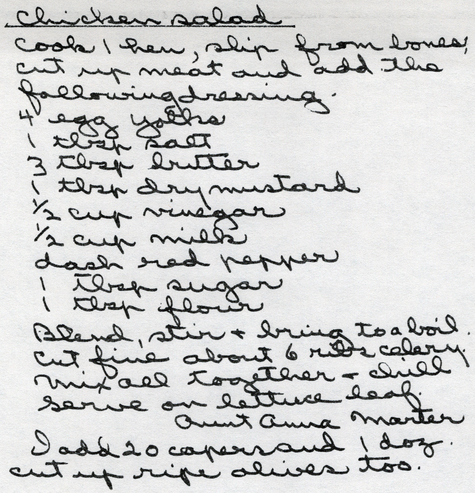 Chicken salad
Cook 1 hen, slip from bones,
cut up meat and add the
following dressing.
4 egg yolks
1 tbsp salt
3 tbsp butter
1 tbsp dry mustard
1/2 cup vinegar
1/2 cup milk
dash red pepper
1 tbsp sugar
1 tbsp flour
Blend, stir + bring to a boil.
Cut fine about 6 ribs celery
Mix all together + chill
Serve on lettuce leaf.
Aunt Anna Marter
I add 20 capers and 1 doz.
cut up ripe olives too.